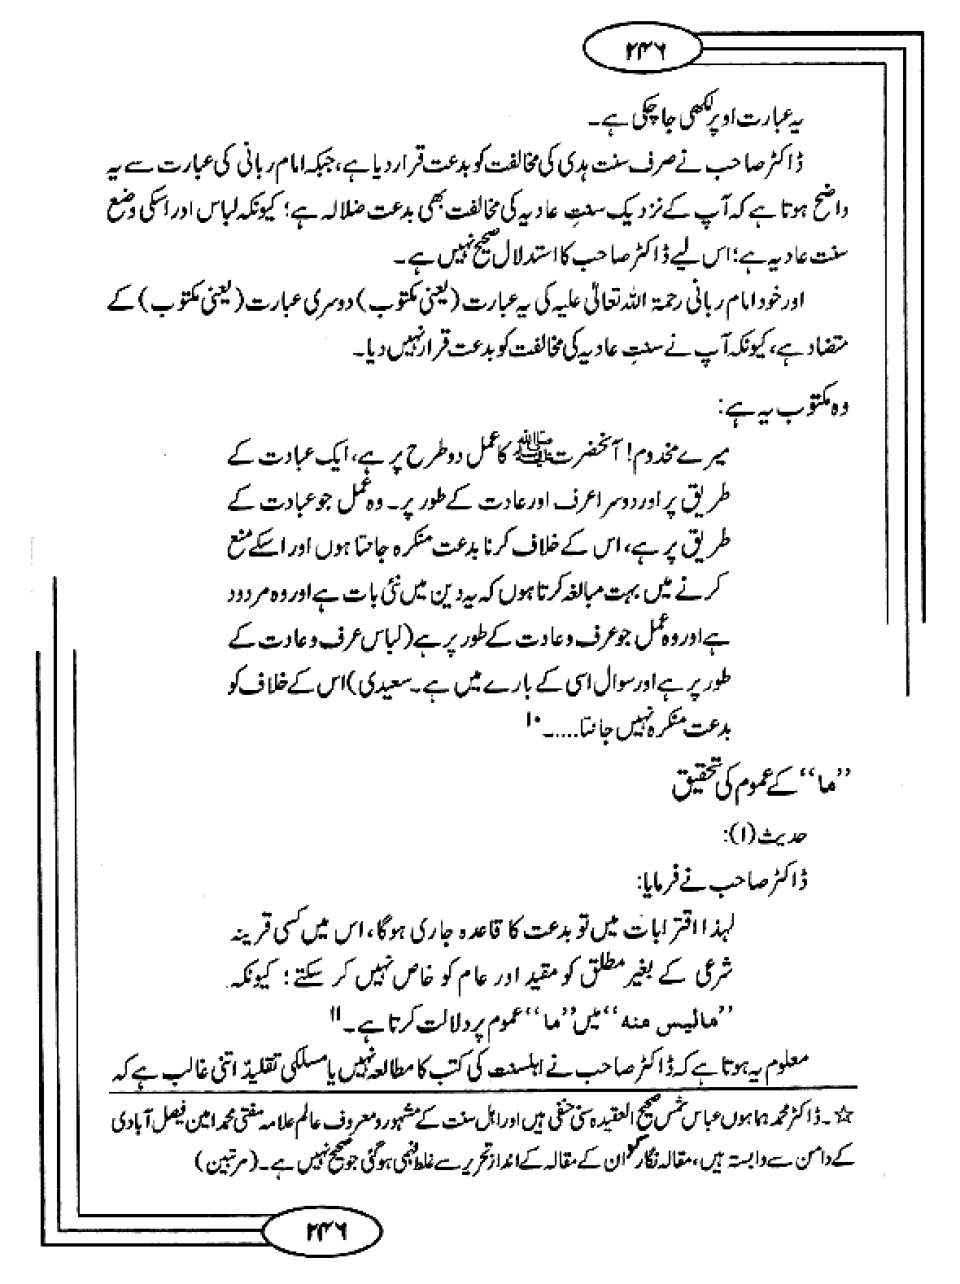 ۲۴۶
یہ عبارت اوپر لکھی جا چکی ہے۔
ڈاکٹر صاحب نے صرف سنت ہدی کی مخالفت کو بدعت قرار دیا ہے، جبکہ امام ربانی کی عبارت سے یہ
واضح ہوتا ہے کہ آپ کے نزدیک سنتِ عادیہ کی مخالفت بھی بدعت ضلالہ ہے؛ کیونکہ لباس اور اسکی وضع
سنت عادیہ ہے؛ اس لیے ڈاکٹر صاحب کا استدلال صحیح نہیں ہے۔
اور خود امام ربانی رحمۃ اللہ تعالیٰ علیہ کی یہ عبارت (یعنی مکتوب) دوسری عبارت (یعنی مکتوب) کے
متضاد ہے، کیونکہ آپ نے سنتِ عادیہ کی مخالفت کو بدعت قرار نہیں دیا۔
وہ مکتوب یہ ہے:
میرے مخدوم! آنحضرت ﷺ کا عمل دو طرح پر ہے، ایک عبادت کے
طریق پر اور دوسرا عرف اور عادت کے طور پر۔ وہ عمل جو عبادت کے
طریق پر ہے، اس کے خلاف کرنا بدعت منکرہ جانتا ہوں اور اسکے منع
کرنے میں بہت مبالغہ کرتا ہوں کہ یہ دین میں نئی بات ہے اور وہ مردود
ہے اور وہ عمل جو عرف و عادت کے طور پر ہے (لباس عرف و عادت کے
طور پر ہے اور سوال اسی کے بارے میں ہے۔ سعیدی) اس کے خلاف کو
بدعت منکرہ نہیں جانتا....۔۱۰
”ما“ کے عموم کی تحقیق
حدیث (۱):
ڈاکٹر صاحب نے فرمایا:
لہذا اقترابات میں تو بدعت کا قاعدہ جاری ہوگا، اس میں کسی قرینہ
شرعی کے بغیر مطلق کو مقید اور عام کو خاص نہیں کر سکتے؛ کیونکہ
”مالیس منه“ میں ”ما“ عموم پر دلالت کرتا ہے۔۱۱
معلوم یہ ہوتا ہے کہ ڈاکٹر صاحب نے اہلسنت کی کتب کا مطالعہ نہیں یا مسلکی تقلید اتنی غالب ہے کہ
☆۔ ڈاکٹر محمد ہمایوں عباس شمس صحیح العقیدہ سنی حنفی ہیں اور اہل سنت کے مشہور و معروف عالم علامہ مفتی محمد امین فیصل آبادی
کے دامن سے وابستہ ہیں، مقالہ نگار کو ان کے مقالہ کے انداز تحریر سے غلط فہمی ہوگئی جو صحیح نہیں ہے۔ (مرتبین)
۲۴۶